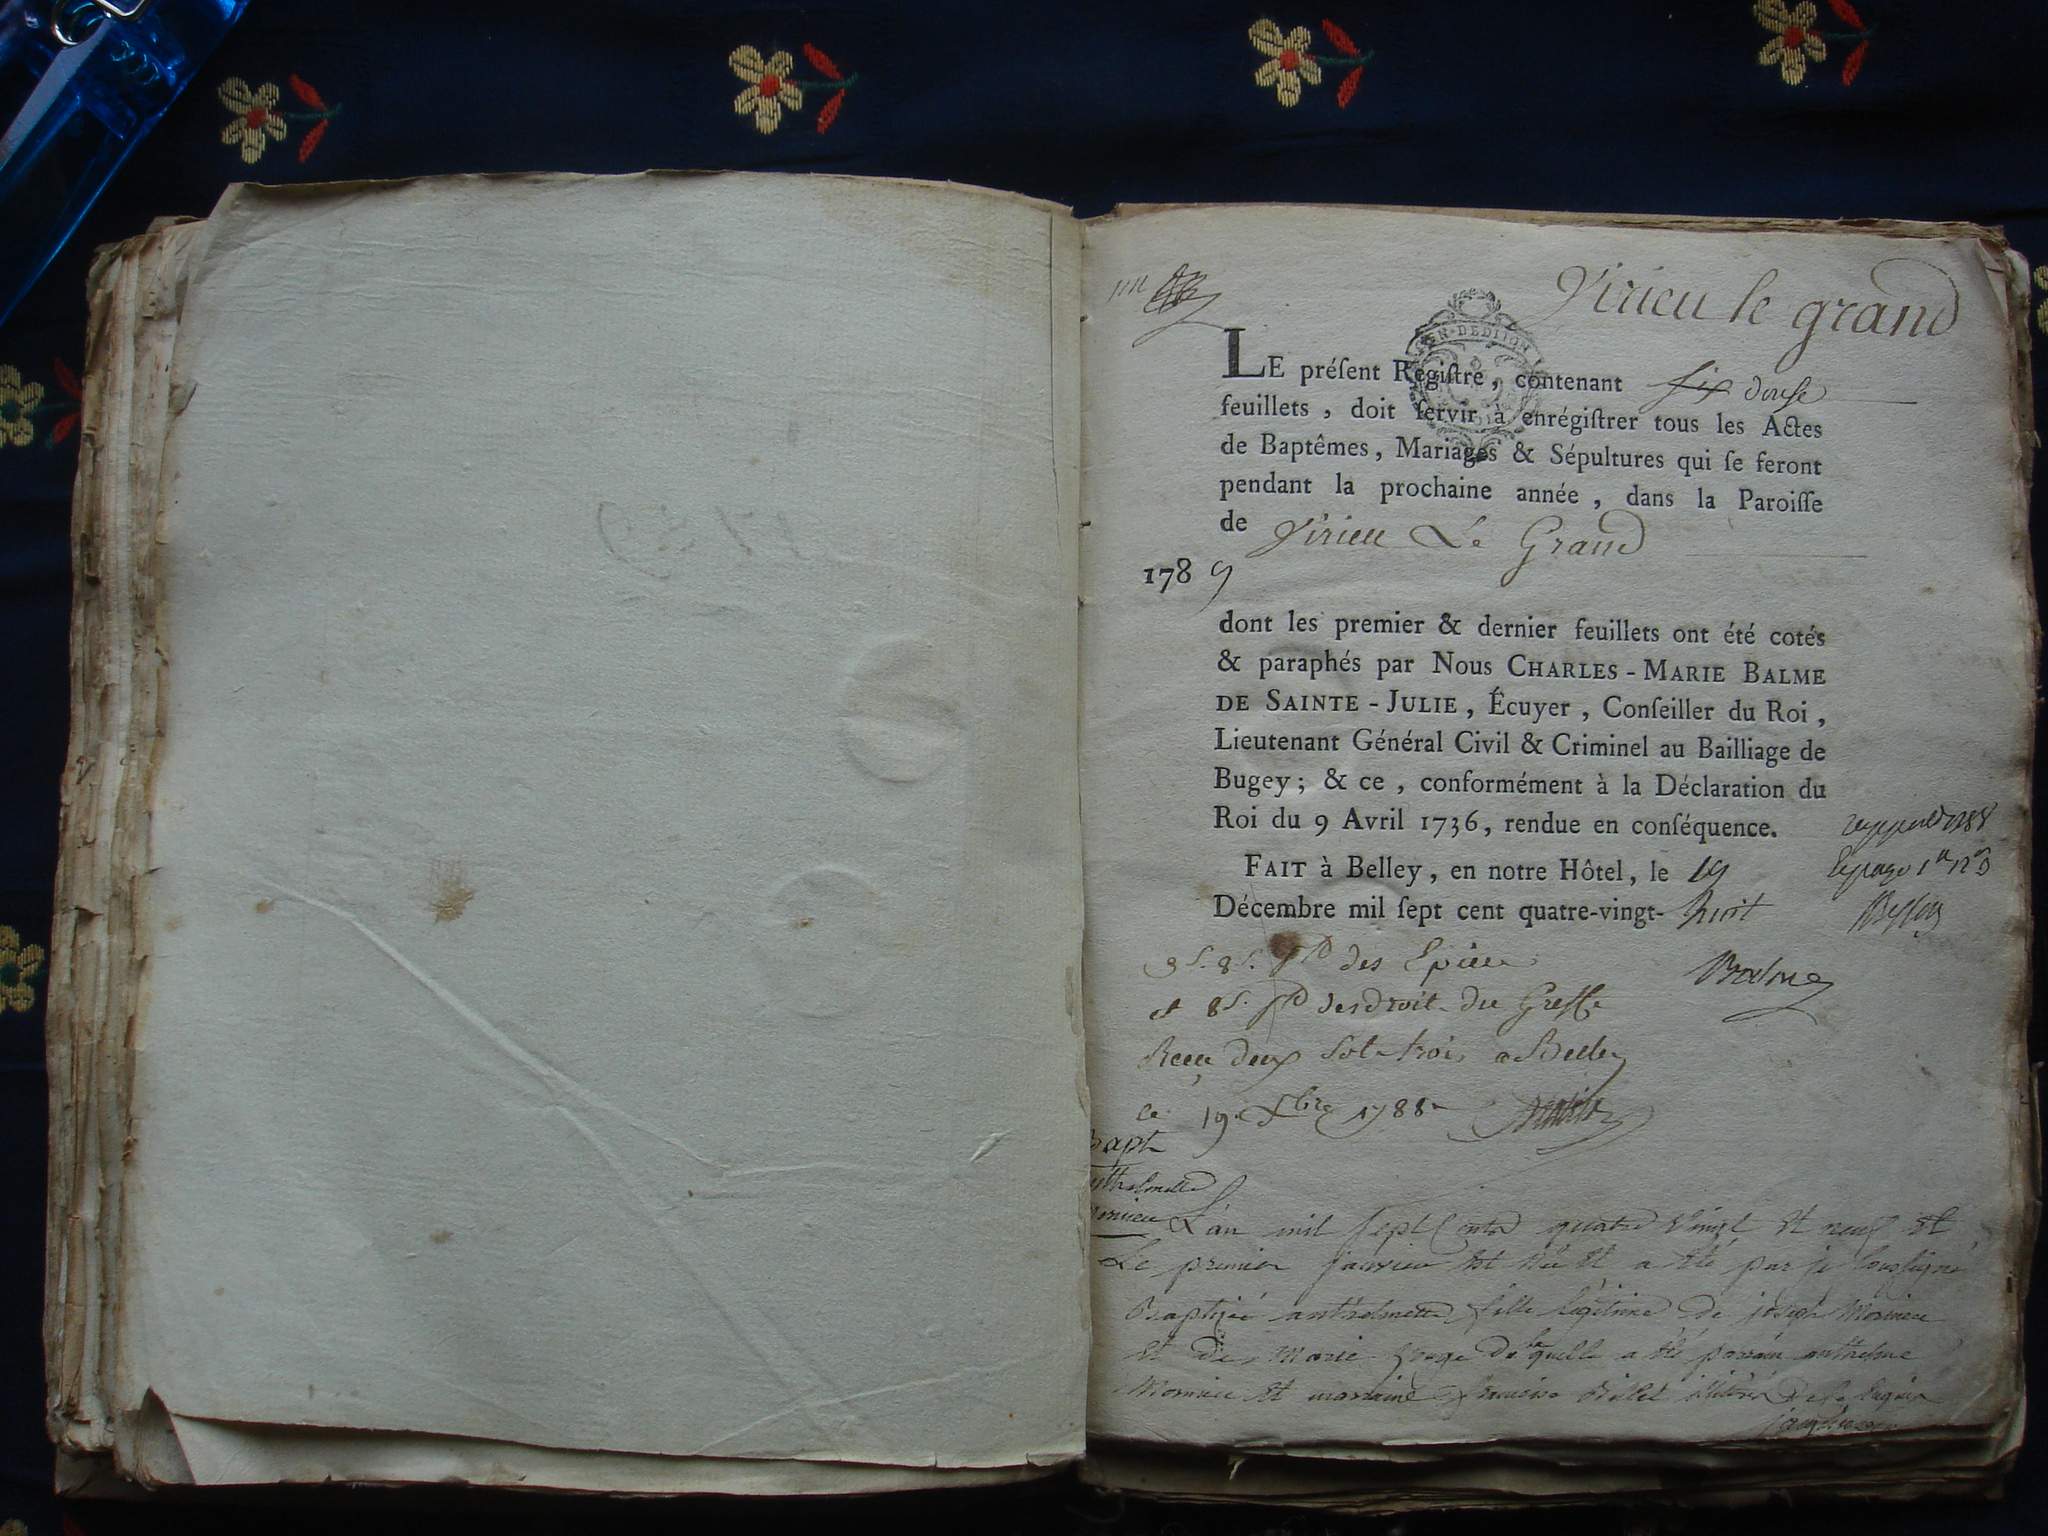 Virieu le grand
LE préſent Regiſtre, contenant ſix douſe
feuillets, doit ſervir à enrégiſtrer tous les Actes
de Baptêmes, Mariages & Sépultures qui ſe feront
pendant la prochaine année, dans la Paroiſſe
de Virieu Le Grand
1789
dont les premier & dernier feuillets ont été cotés
& paraphés par Nous CHARLES-MARIE BALME
DE SAINTE-JULIE, Écuyer, Conſeiller du Roi,
Lieutenant Général Civil & Criminel au Bailliage de
Bugey; & ce, conformément à la Déclaration du
Roi du 9 Avril 1736, rendue en conſéquence.
FAIT à Belley, en notre Hôtel, le 19
Décembre mil ſept cent quatre-vingt-huit
Balme
et 8s. pd des droit du Greffe
Receu deux sols trois a Belley
ce 19e Xbre 1788
Bapt
L'an mil sept cents quatre vingt et neuf et
Le premier janvier est née et a été par je soussigné
Baptisée anthelmette fille légitime de joseph Monnieu
et de marie de laquelle a été parrain anthelme
Monnieu et marraine françoise Billet